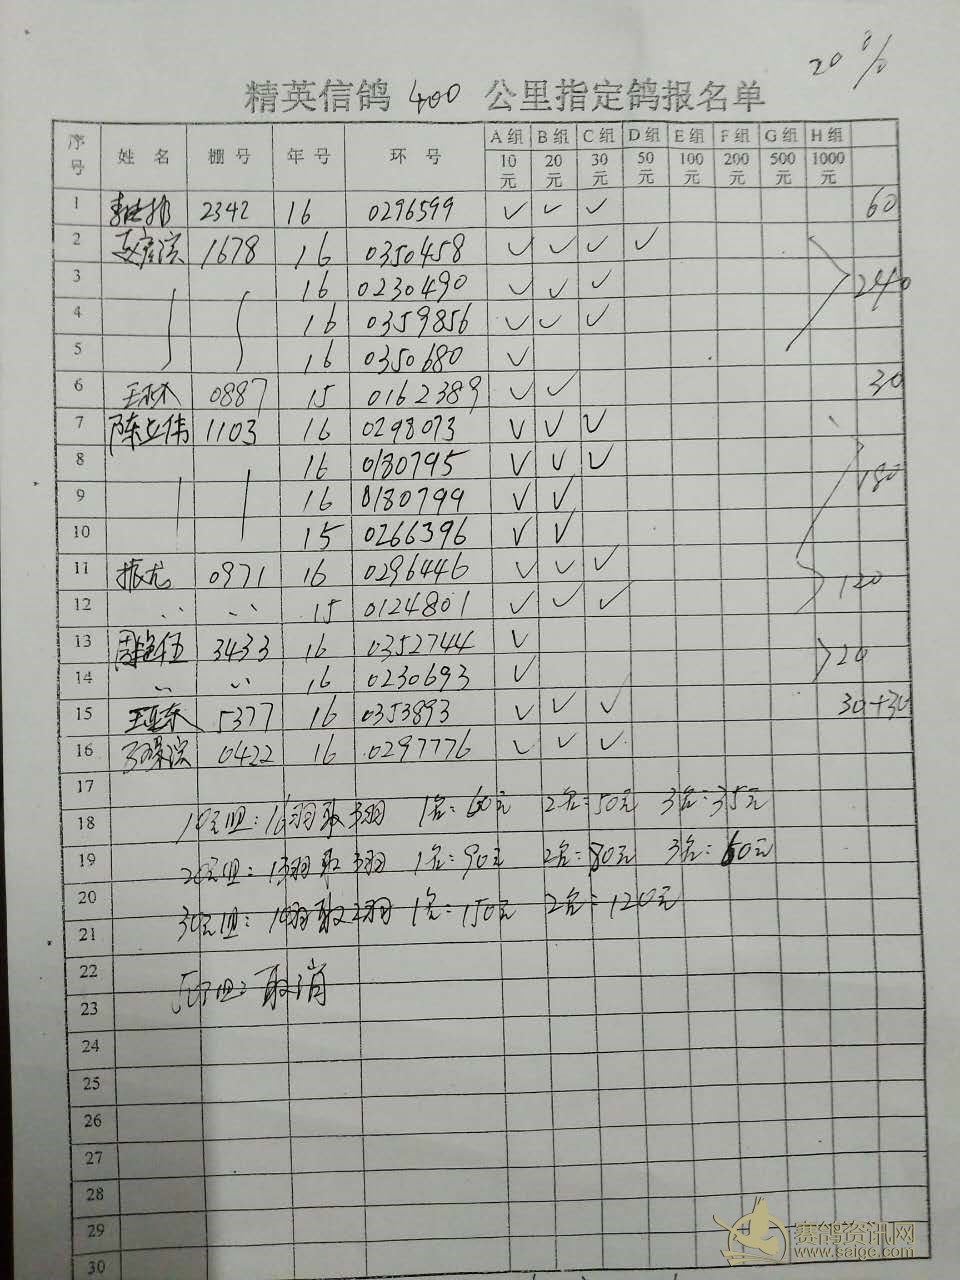 20%
精英信鸽 400 公里指定鸽报名单
序号 姓名 棚号 年号 环号 A组 B组 C组 D组 E组 F组 G组 H组
10元 20元 30元 50元 100元 200元 500元 1000元
1 2342 16 0296599 ✓ ✓ ✓ 60
2 1678 16 0350458 ✓ ✓ ✓ ✓
3 16 0230490 ✓ ✓ ✓ 240
4 16 0359856 ✓ ✓ ✓
5 16 0350680 ✓
6 0887 15 0162389 ✓ ✓ 30
7 陈立伟 1103 16 0298073 ✓ ✓ ✓
8 16 0180795 ✓ ✓ ✓ 180
9 16 0180799 ✓ ✓
10 15 0266396 ✓ ✓
11 0971 16 0296446 ✓ ✓ ✓ 120
12 15 0124801 ✓ ✓ ✓
13 3433 16 0352744 ✓ 20
14 16 0230693 ✓
15 王亚东 5377 16 0353893 ✓ ✓ ✓ 30+30
16 0422 16 0297776 ✓ ✓ ✓
17
18 10元组:16羽取3羽 1名:60元 2名:50元 3名:35元
19 20元组:13羽取3羽 1名:90元 2名:80元 3名:60元
20
21 30元组:10羽取2羽 1名:150元 2名:120元
22
23 50组:取消
24
25
26
27
28
29
30
赛鸽资讯网
www.saige.com